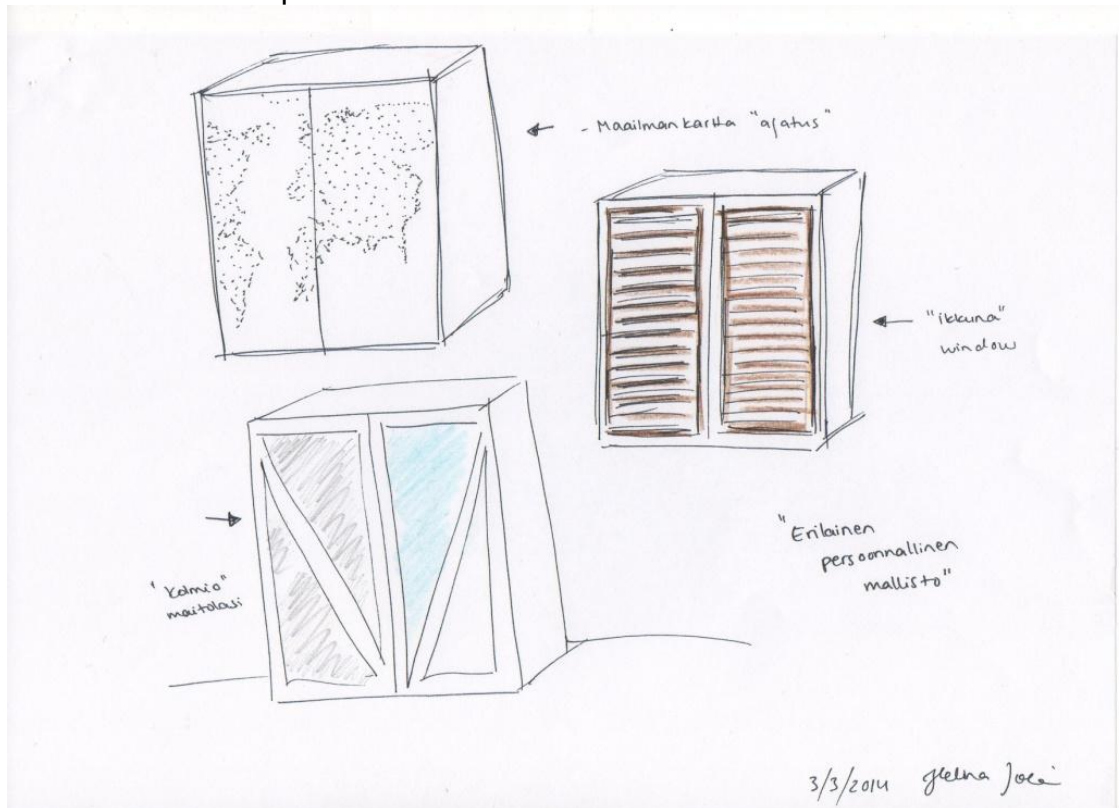 - Maailmankartta "ajatus"
"ikkuna"
window
"Kolmio"
maitolasi
"Erilainen
persoonnallinen
mallisto"
3/3/2014